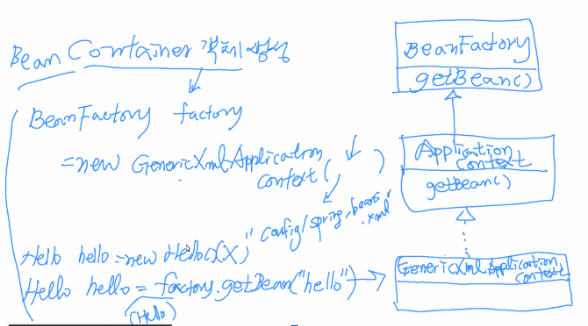 Bean Container 객체생성
BeanFactory factory
=new GenericXmlApplication
Context( , )
"config/spring-beans
.xml"
Hello hello=new Hello(X)
Hello hello = factory.getBean("hello")
(Hello)
BeanFactory
getBean()
Application
Context
getBean()
GenericXmlApplication
Context